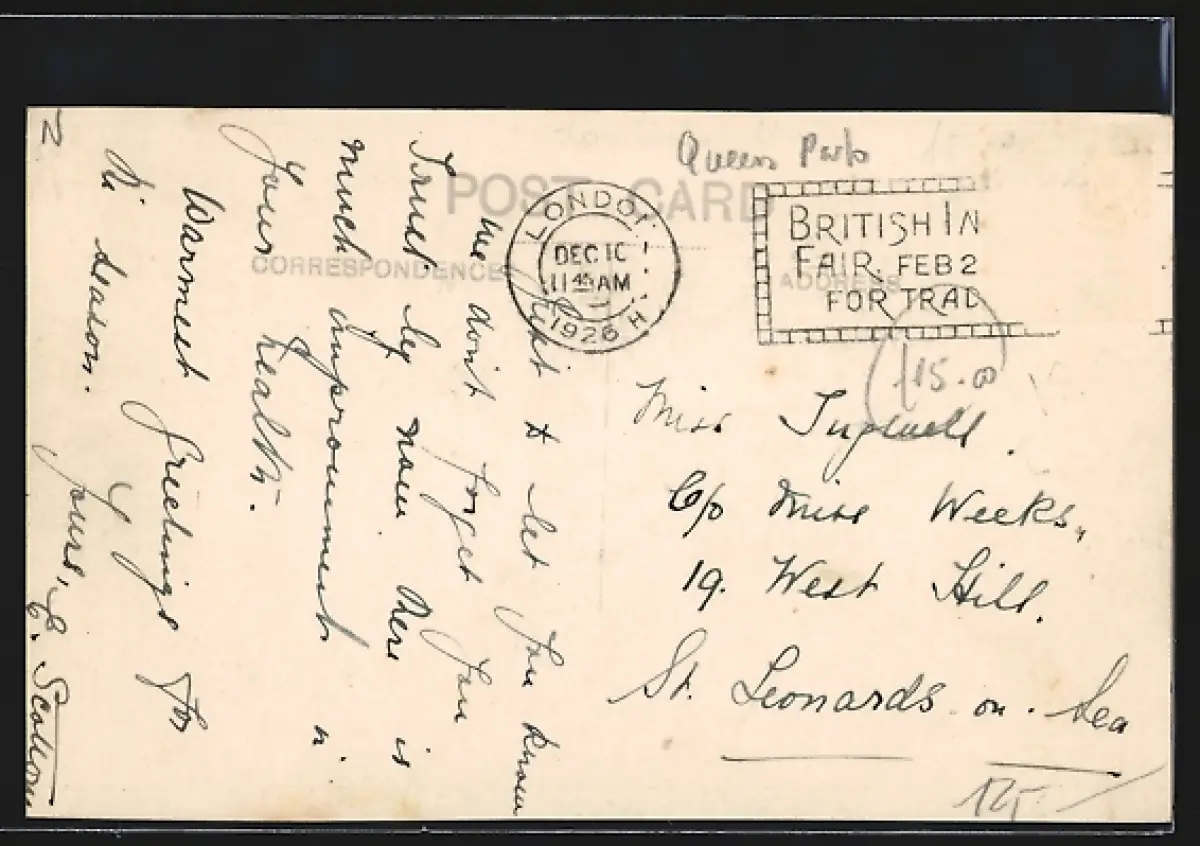 Queens Park
POST CARD
CORRESPONDENCE
ADDRESS
LONDON
DEC 10
11 45 AM
1926 H
BRITISH IN
FAIR. FEB 2
FOR TRAD
£15.00
Just to let you know
we don't forget you
much improvement in
your health.
Warmest Greetings for
season.
Yours, E.
Miss Tugwell.
C/o Miss Weeks,
19. West Hill.
St. Leonards. on. Sea
2